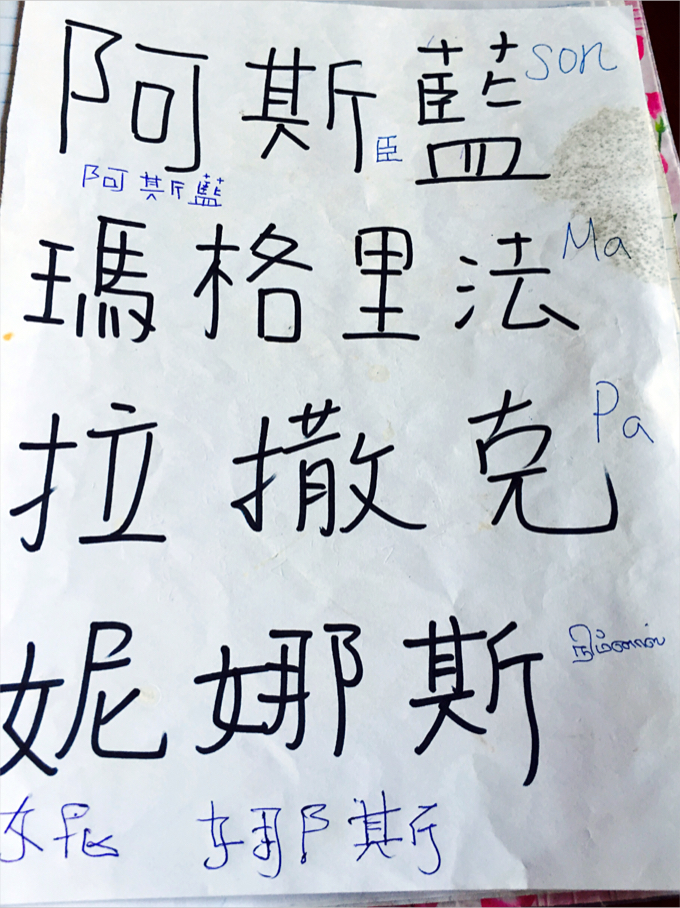 阿斯藍 son
臣
阿斯藍
瑪格里法 Ma
拉撒克 Pa
妮娜斯
妮 娜斯